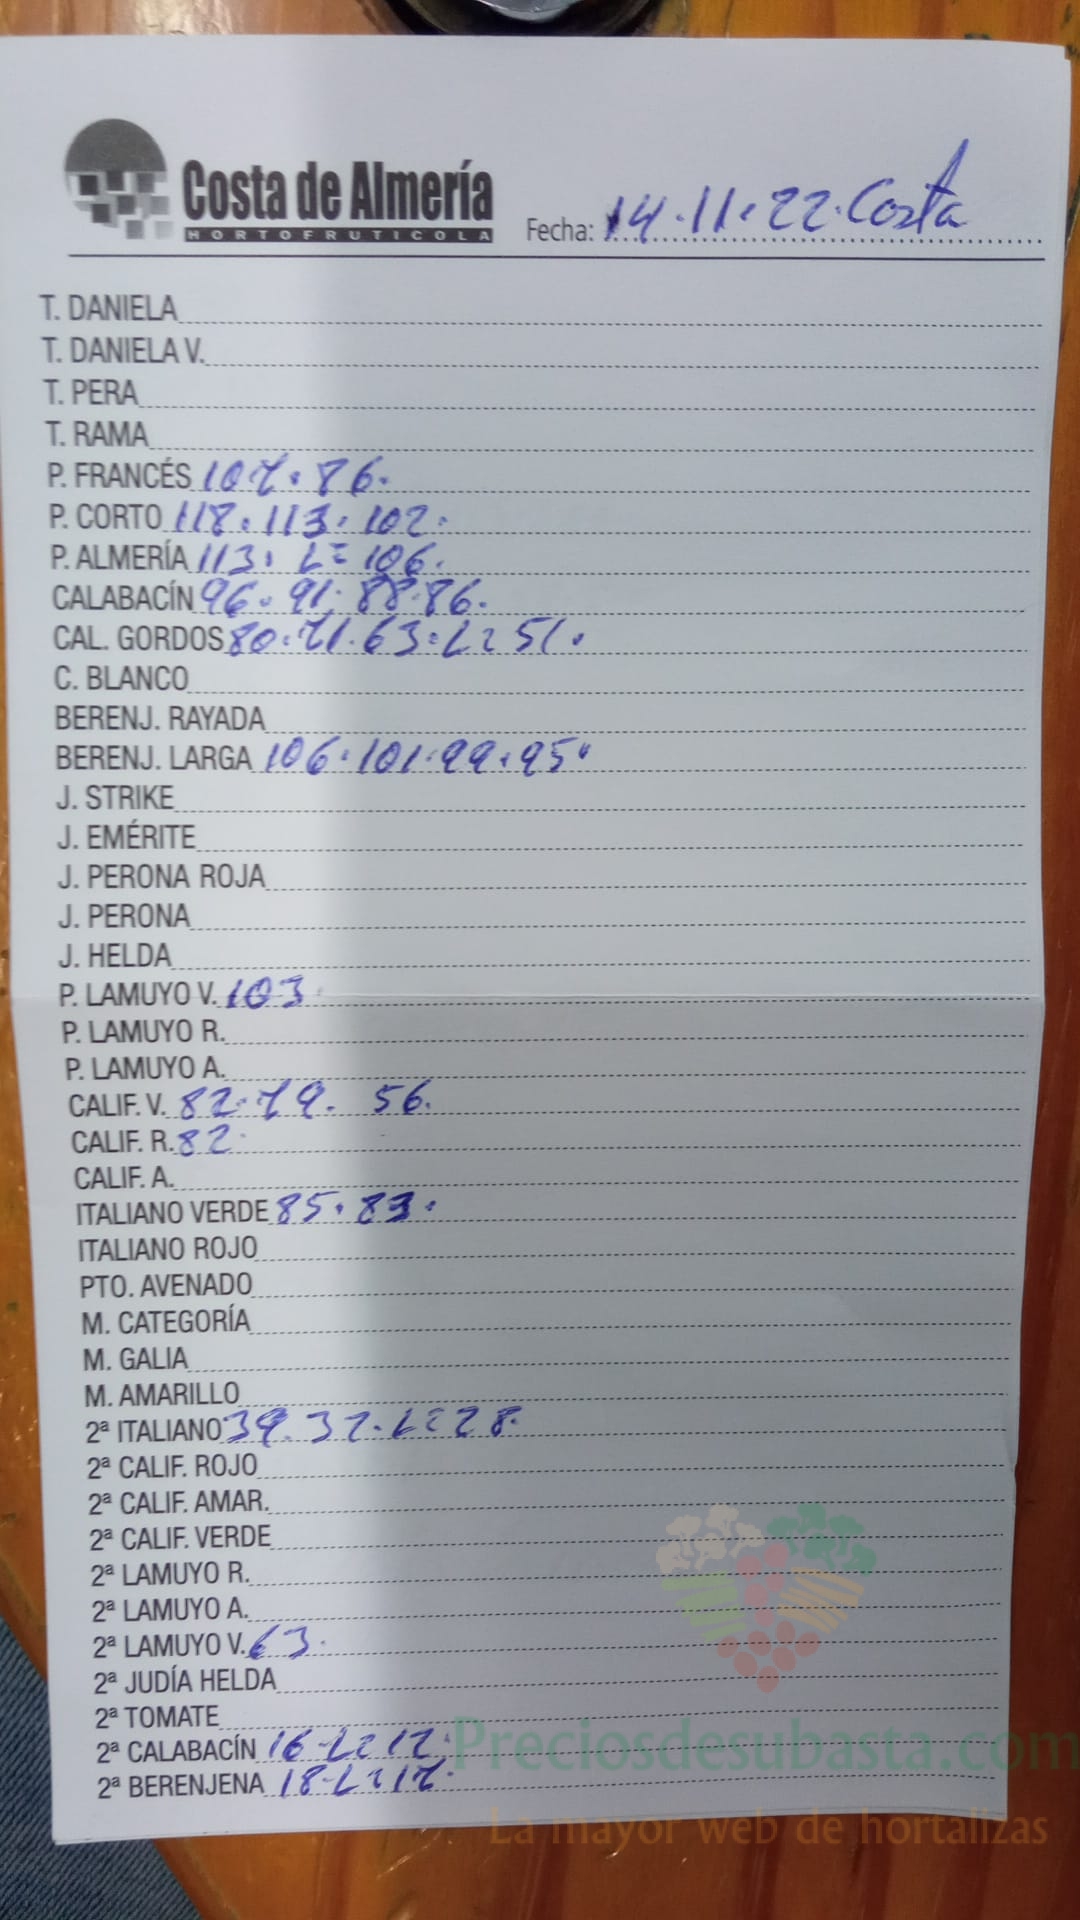 Costa de Almería
HORTOFRUTICOLA
Fecha: 14.11.22. Costa
T. DANIELA
T. DANIELA V.
T. PERA
T. RAMA
P. FRANCÉS 107. 86.
P. CORTO 118. 113. 102.
P. ALMERÍA 113. L= 106.
CALABACÍN 96. 91. 88. 86.
CAL. GORDOS 80. 71. 63. L= 51.
C. BLANCO
BERENJ. RAYADA
BERENJ. LARGA 106. 101. 99. 95.
J. STRIKE
J. EMÉRITE
J. PERONA ROJA
J. PERONA
J. HELDA
P. LAMUYO V. 103
P. LAMUYO R.
P. LAMUYO A.
CALIF. V. 82. 79. 56.
CALIF. R. 82.
CALIF. A.
ITALIANO VERDE 85. 83.
ITALIANO ROJO
PTO. AVENADO
M. CATEGORÍA
M. GALIA
M. AMARILLO
2ª ITALIANO 39. 32. L= 28.
2ª CALIF. ROJO
2ª CALIF. AMAR.
2ª CALIF. VERDE
2ª LAMUYO R.
2ª LAMUYO A.
2ª LAMUYO V. 63.
2ª JUDÍA HELDA
2ª TOMATE
2ª CALABACÍN 16. L= 12.
2ª BERENJENA 18. L= 17.
Preciosdesubasta.com
La mayor web de hortalizas